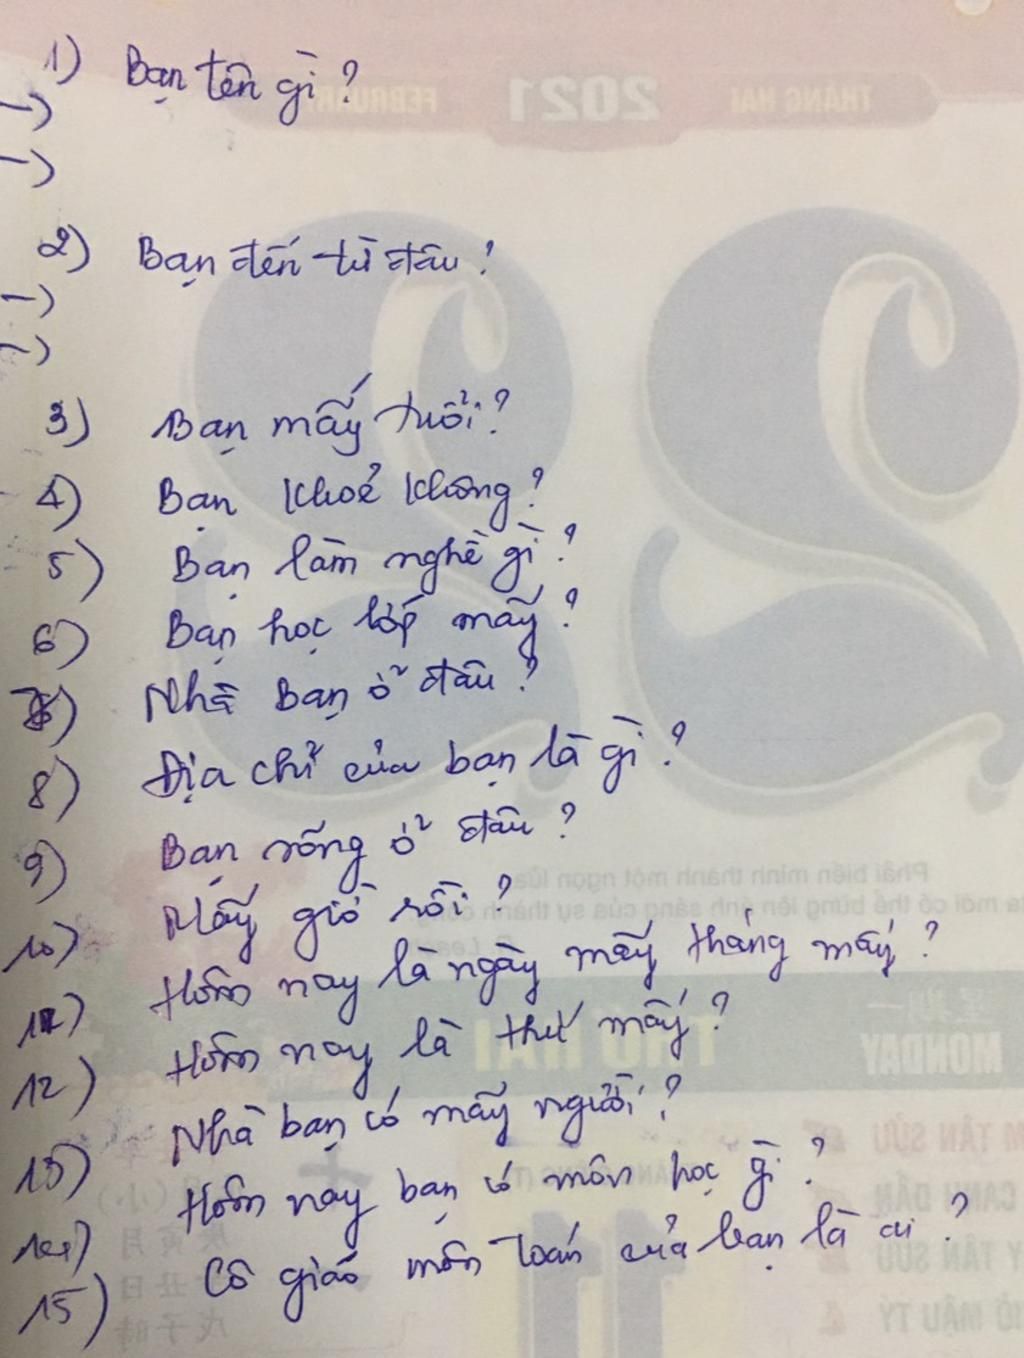 1) Bạn tên gì?
->
->
2) Bạn đến từ đâu?
->
->
3) Bạn mấy tuổi?
4) Bạn khoẻ không?
5) Bạn làm nghề gì?
6) Bạn học lớp mấy?
7) Nhà Bạn ở đâu?
8) Địa chỉ của bạn là gì?
9) Bạn sống ở đâu?
10) Mấy giờ rồi?
11) Hôm nay là ngày mấy tháng mấy?
12) Hôm nay là thứ mấy?
13) Nhà bạn có mấy người?
14) Hôm nay bạn có môn học gì?
15) Cô giáo môn toán của bạn là ai?
THÁNG HAI 2021 FEBRUARY
22
Phải biến mình thành một ngọn lửa
THỨ HAI
MONDAY
11
TÂN SỬU
CANH DẦN
TÂN SỬU
MẬU TÝ